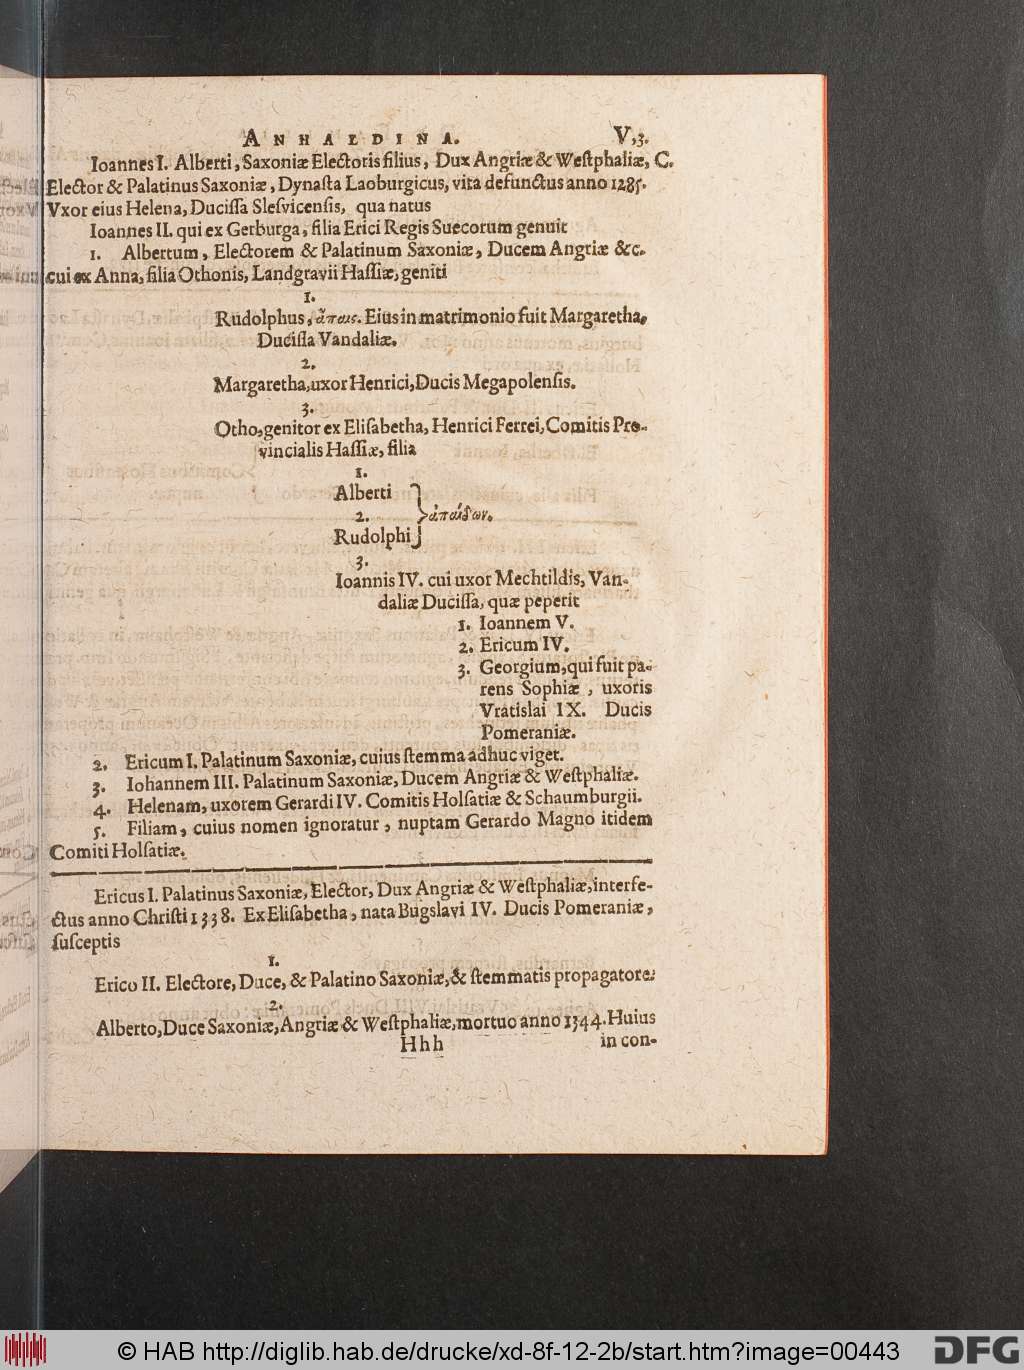 ANHALDINA. V,3.
Ioannes I. Alberti, Saxoniæ Electoris filius, Dux Angriæ & Weſtphaliæ, C.
Elector & Palatinus Saxoniæ, Dynaſta Laoburgicus, vita defunctus anno 1285.
Vxor eius Helena, Duciſſa Sleſvicenſis, qua natus
Ioannes II. qui ex Gerburga, filia Erici Regis Suecorum genuit
1. Albertum, Electorem & Palatinum Saxoniæ, Ducem Angriæ &c.
cui ex Anna, filia Othonis, Landgravii Haſſiæ, geniti
1.
Rudolphus, ἄπαις. Eius in matrimonio fuit Margaretha,
Duciſſa Vandaliæ.
2.
Margaretha, uxor Henrici, Ducis Megapolenſis.
3.
Otho, genitor ex Eliſabetha, Henrici Ferrei, Comitis Pro-
vincialis Haſſiæ, filia
1.
Alberti
2. ἀπαίδων.
Rudolphi
3.
Ioannis IV. cui uxor Mechtildis, Van-
daliæ Duciſſa, quæ peperit
1. Ioannem V.
2. Ericum IV.
3. Georgium, qui fuit pa-
rens Sophiæ, uxoris
Vratislai IX. Ducis
Pomeraniæ.
2. Ericum I. Palatinum Saxoniæ, cuius ſtemma adhuc viget.
3. Iohannem III. Palatinum Saxoniæ, Ducem Angriæ & Weſtphaliæ.
4. Helenam, uxorem Gerardi IV. Comitis Holſatiæ & Schaumburgii.
5. Filiam, cuius nomen ignoratur, nuptam Gerardo Magno itidem
Comiti Holſatiæ.
Ericus I. Palatinus Saxoniæ, Elector, Dux Angriæ & Weſtphaliæ, interfe-
ctus anno Chriſti 1338. Ex Eliſabetha, nata Bugslavi IV. Ducis Pomeraniæ,
ſuſceptis
1.
Erico II. Electore, Duce, & Palatino Saxoniæ, & ſtemmatis propagatore:
2.
Alberto, Duce Saxoniæ, Angriæ & Weſtphaliæ, mortuo anno 1344. Huius
Hhh in con-
© HAB http://diglib.hab.de/drucke/xd-8f-12-2b/start.htm?image=00443
DFG